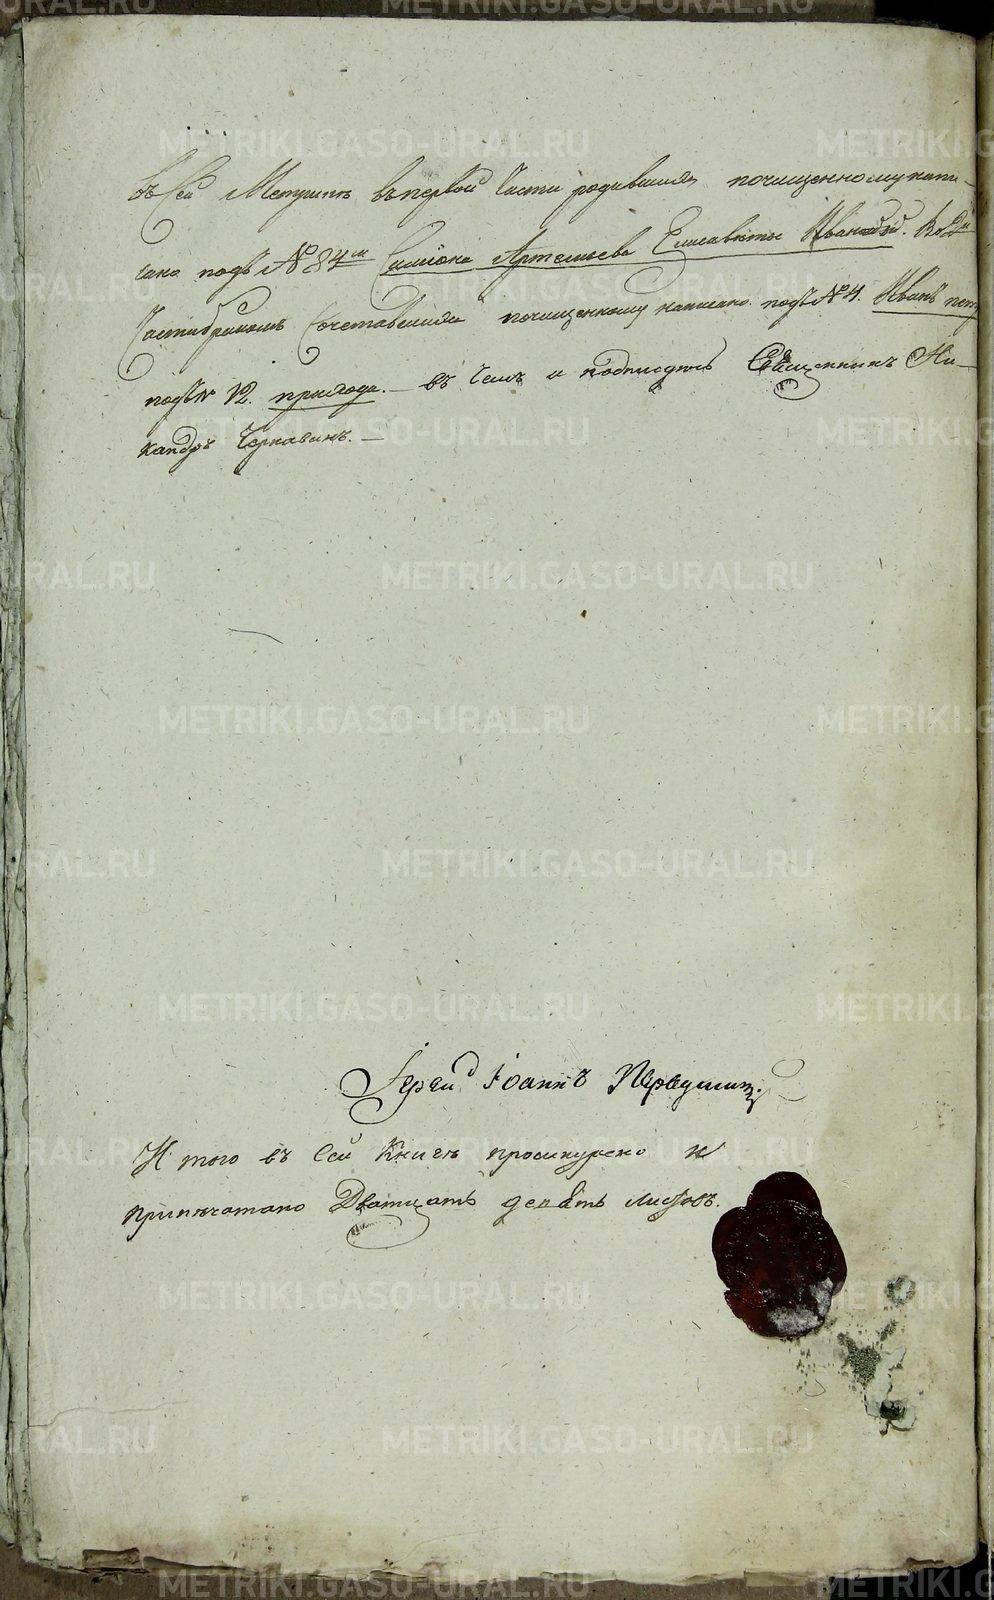 въ сей Метрикѣ въ первой части родившихся почищенному напи-
сано подъ № 84м Симеона Артемьева Елисаветы Ивановой. Во 2й
части браком сочетавшихся почищенному написано подъ № 4. Иванъ
подъ № 12. прихода. – въ чемъ и подписуюсь Священникъ Ни-
кандръ Чернавинъ. –
Іерей Іоаннъ
И того въ сей Книгѣ прошнурено и
припечатано Дватцать девять листовъ.
METRIKI.GASO-URAL.RU